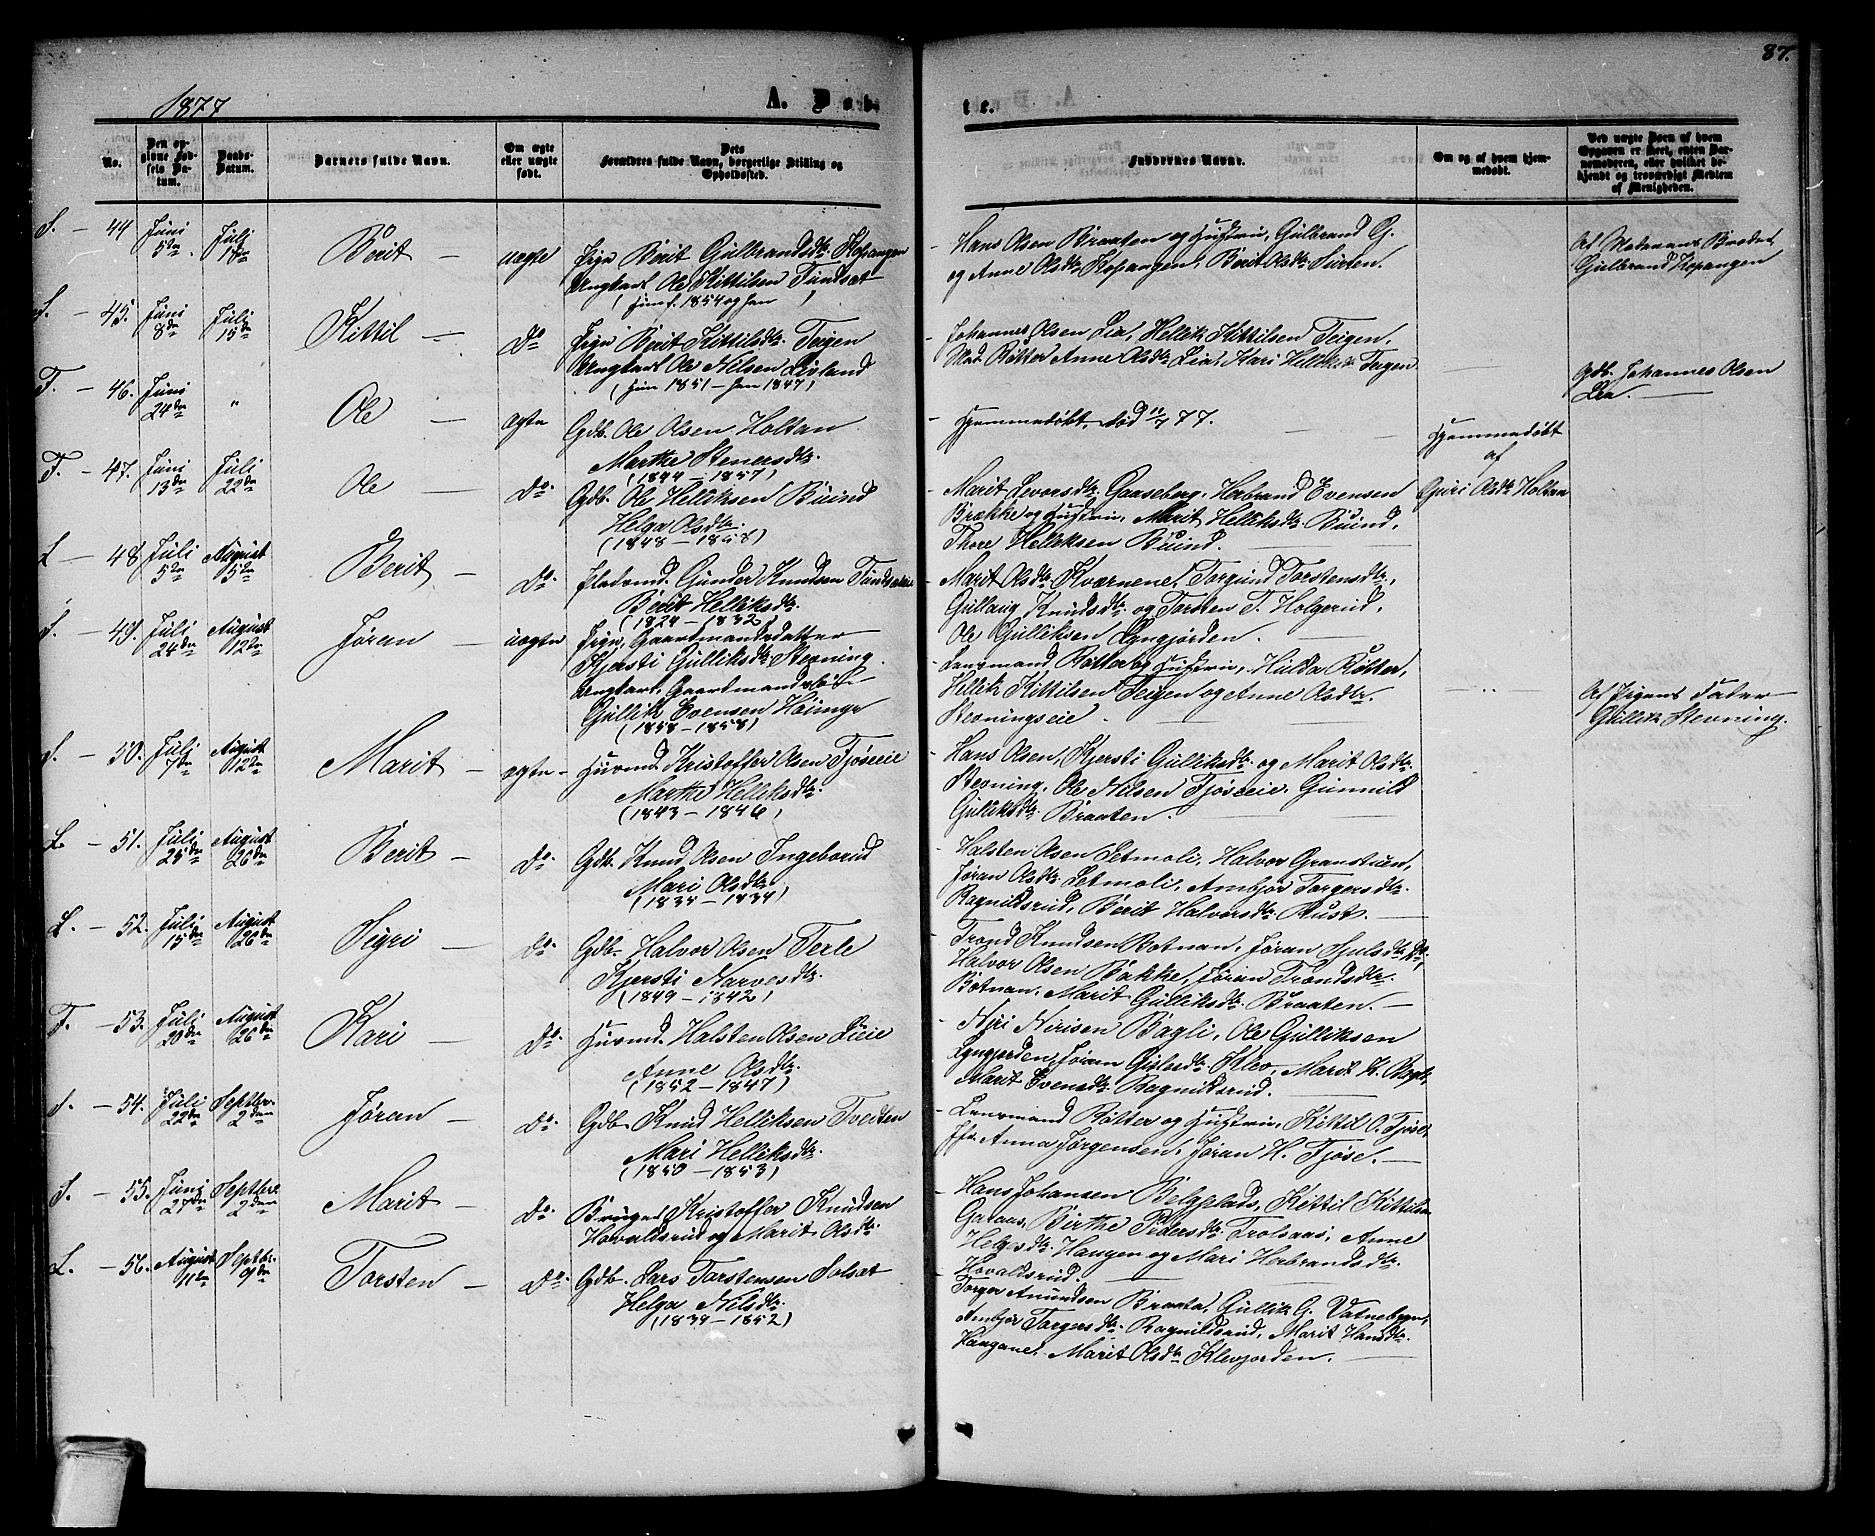 87.
1877
A. Døb
te.
No.
Den op-
givne Fød-
sels Da-
tum.
Daabs-
Datum.
Barnets fulde Navn.
Om ægte
eller uægte
født.
Dets
Forældres fulde Navn, borgerlige Stilling og
Opholdssted.
Faddernes Navne.
Om og af hvem hjem-
medøbt.
Ved uægte Børn af hvem
Opgaven er skeet, enten Bar-
nemoderen, eller hvilket be-
kjendt og troværdigt Medlem
af Menigheden.
S. — 44 Juni 5te Juli 1ste Berit — uægte Pige Berit Gulbrandsdtr. Kopangen
Ungkarl Ole Kittilsen Tundset
(hun f. 1854 og han )
- Hans Olsen Braaten og Hustru, Gulbrand G.
og Anne Olsdtr. Kopangen, Berit Olsdtr.
Af Moderens Broder
Gulbrand Kopangen
S. — 45. Juni 8de Juli 15de Kittil — Do Pige Berit Kittilsdtr. Teigen
Ungkarl Ole Nilsen Livland
(hun 1851 — han 1847)
- Johannes Olsen Lia, Hellik Kittilsen Teigen,
Mad. Røtter Anne Olsdtr. Lia, Mari Helliksdtr. Teigen
Gdb. Johannes Olsen
Lia.
F. — 46. Juni 24de " Ole — ægte Gdb. Ole Olsen Holtan
Marthe Stenersdtr.
(1844 — 1857)
- Hjemmedøbt, død 11/7 77.
Hjemmedøbt
af
Guri Olsdtr. Holtan
F. — 47. Juni 13de Juli 22de Ole — Do. Gdb. Ole Helliksen Buind
Helga Olsdtr.
(1848 — 1858)
- Marit Levorsdtr. Gaaseberg, Herbrand Evensen
Brække og Hustru, Marit Helliksdtr. Buind,
Thore Helliksen Buind.
L — 48. Juli 5te August 5te Berit — Do. Pladsmd. Gunder Knudsen
Berit Helliksdtr.
(1824 — 1832)
- Marit Olsdtr. Kværnene, Torgund Torstensdtr.,
Gullaug Knudsdtr. og Torsten T. Holgerud,
Ole Gulliksen Lyngjorden.
S. — 49. Juli 24de August 12te Jøran — uægte Pige, Gaardmandsdatter
Kjersti Gulliksdtr. Stevning.
Ungkarl, Gaardmandssøn
Gullik Evensen Høimyr
(1858 — 1858)
- Lensmand Røtter og Hustru, Hulda Røtter,
Hellik Kittilsen Teigen og Anne Olsdtr.
Stevningseie.
Af Pigens Fader
Gullik Stevning.
S. — 50. Juli 7de August 12te Marit — ægte — Husmd. Kristoffer Olsen Tjøseeie
Marthe Helliksdtr.
(1843 — 1846)
- Hans Olsen, Kjersti Gulliksdtr. og Marit Olsdtr.
Stevning, Ole Nilsen Tjøseeie, Gunnild
Gulliksdtr. Braaten.
L — 51. Juli 25de August 26de Berit — Do. Gdb. Knud Olsen Ingeborud
Mari Olsdtr.
(1834 — 1834)
- Halsten Olsen Setmoli, Halvor Granstuen,
Jøran Olsdtr. Setmoli, Ambjør Torgersdtr.
Ragnildsrud, Berit Halvorsdtr. Rust.
L. — 52. Juli 15de August 26de Sigri — Do. Gdb. Halvor Olsen Terle
Kjersti Narvesdtr.
(1849 — 1842)
- Trond Knudsen Botnan, Jøran Hjulsdtr. Do.
Halvor Olsen Bakke, Jøran Trondsdtr.
Botnan, Marit Gulliksdtr. Braaten.
F. — 53. Juli 20de August 26de Kari — Do. Husmd. Halsten Olsen Lieie
Anne Olsdtr.
(1852 — 1847)
- Niri Nirisen Bagli, Ole Gulliksen
Lyngjorden, Jøran Gislesdtr. Klev, Marit N. Bagli,
Marit Evensdtr. Ragnildsrud.
S. — 54. Juli 22de Septbr. 2den Jøran — Do. Gdb. Knud Helliksen Tveiten
Mari Helliksdtr.
(1850 — 1853)
- Lensmand Røtter og Hustru, Kittil O. Tjøse,
Anna Jørgensen, Jøran H. Tjøse.
S. — 55. Juni 27de Septbr. 2den Marit — Do. Bruger Kristoffer Knudsen
Hovaldsrud og Marit Olsdtr.
- Hans Johansen Belgplads, Kittil Kittilsen
Garaas, Birthe Pedersdtr. Trolsaas, Anne
Helgesdtr. Haugen og Mari Herbrandsdtr.
Hovaldsrud.
L. — 56. August 11te Septbr. 9de Torsten — Do. Gdb. Lars Torstensen Solsæt
Helga Nilsdtr.
(1834 — 1852)
Torger Amundsen Braata, Gullik G. Vatnebryn,
Ambjør Torgersdtr. Ragnildsrud, Marit Hansdtr.
Haugane, Marit Olsdtr. Klevjorden.